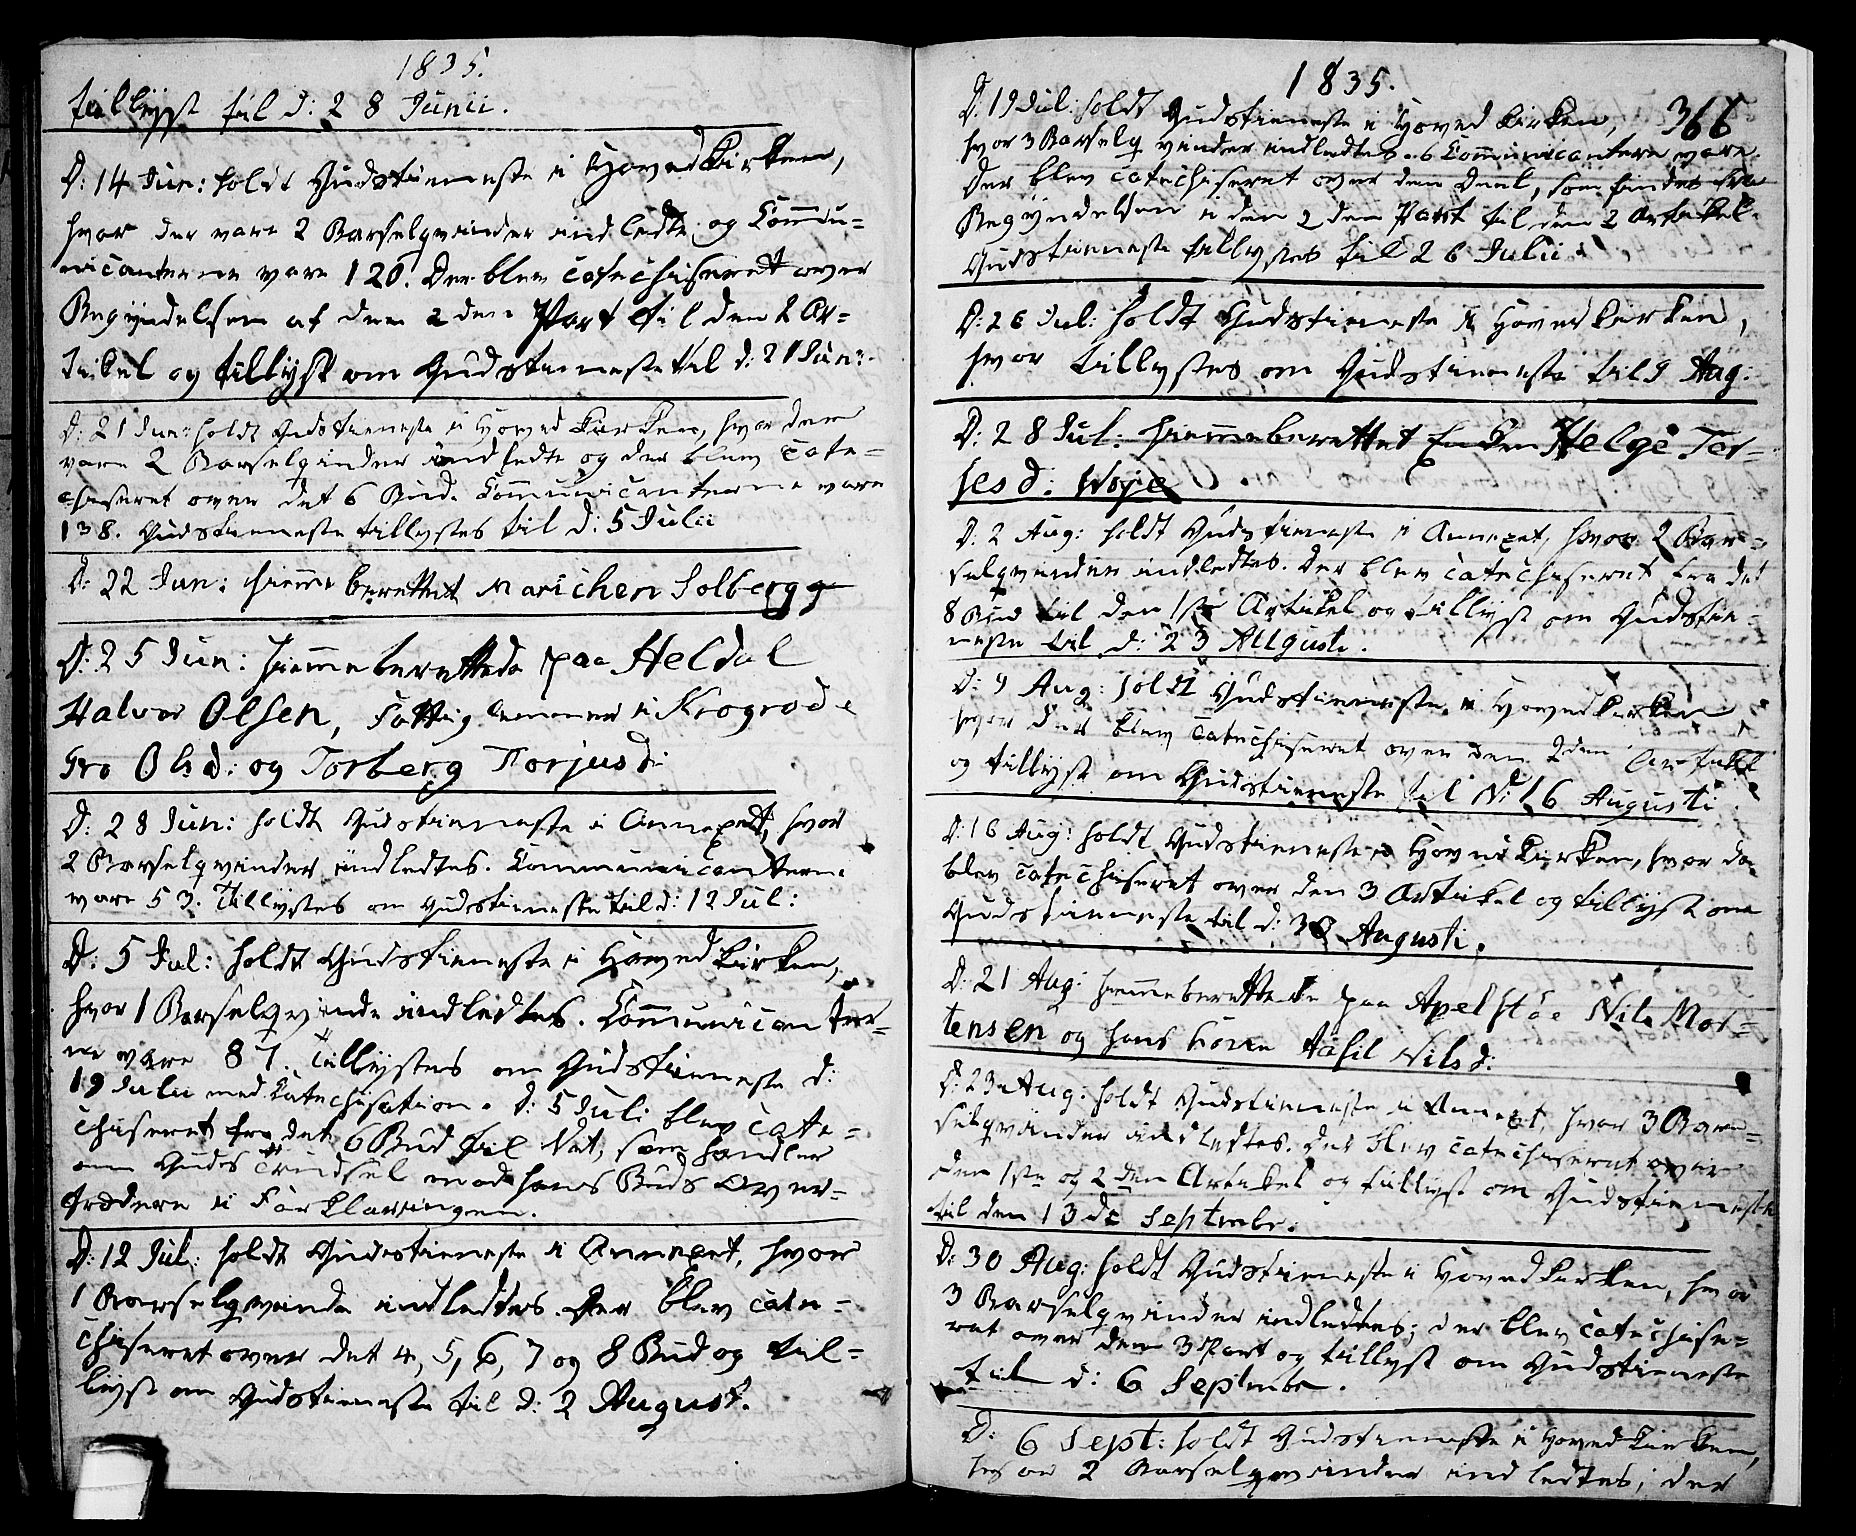 1835.
tillyst til d: 28 Junii.
D: 14 Jun: holdt Gudstienneste i Hovedkirken,
hvor der vare 2 Barselqvinder indledte og Commu-
nicanterne vare 120. Der blev catechiseret over
Begyndelsen af den 2den Part til den 2 Ar-
tikel og tillyst om Gudstienneste til d: 21 Jun:
D: 21 Jun: holdt Gudstienneste i Hovedkirken, hvor der
vare 2 Barselqvinder indledte og der blev cate-
chiseret over det 6 Bud. Communicanterne vare
138. Gudstienneste tillystes til d: 5 Julii
D: 22 Jun: hiemmeberettet Marichen Solbergg
D: 25 Jun: hiemmeberettede paa Heldal
Halvor Olsen, Fattiglemmer i Krogrode
Gro Olsd: og Torberg Torjusd:
D: 28 Jun: holdt Gudstienneste i Annexet, hvor
2 Barselqvinder indledtes. Communicanterne
vare 53. Tillystes om Gudstienneste til d: 12 Jul:
D: 5 Jul: holdt Gudstienneste i Hovedkirken,
hvor 1 Barselqvinde indledtes. Communicanter-
ne vare 87. Tillystes om Gudstienneste d:
19 Julii med Catechisation. d: 5 Juli blev cate-
chiseret fra det 6 Bud til det, som handler
om Guds Trudsel mod hans Buds Over-
trædere i Forklaringen.
D: 12 Jul: holdt Gudstienneste i Annexet, hvor
1 Barselqvinde indledtes. Der blev cate-
chiseret over det 4, 5, 6, 7 og 8 Bud og til-
lyst om Gudstienneste til d: 2 August.
1835.
366
D: 19 Jul: holdt Gudstienneste i Hovedkirken,
hvor 3 Barselqvinder indledtes. 6 Communicantere vare.
Der blev catechiseret over den Deel, som findes fra
Begyndelsen i den 2den Part til den 2 Artikel.
Gudstienneste tillystes til 26 Julii.
D: 26 Jul: holdt Gudstienneste i Hovedkirken,
hvor tillystes om Gudstienneste til 9 Aug:
D: 28 Jul: hiemmeberettet Enken Helge Ter-
jesd: Woje
D: 2 Aug: holdt Gudstienneste i Annexet, hvor 2 Bar-
selqvinder indledtes. Der blev catechiseret fra det
8 Bud til den 1ste Artikel og tillyst om Gudstien-
neste til d: 23 Augusti.
D: 9 Aug: holdt Gudstienneste i Hovedkirken
hvor der blev catechiseret over den 2den Artikel
og tillyst om Gudstienneste til d: 16 Augusti
D: 16 Aug: holdt Gudstienneste i Hovedkirken, hvor der
blev catechiseret over den 3 Artikel og tillyst om
Gudstienneste til d: 30 Augusti.
D: 21 Aug: hiemmeberettede paa Apelstöe Nils Mor-
tensen og hans Kone Aasil Nilsd:
D: 23 Aug: holdt Gudstienneste i Annexet, hvor 3 Bar-
selqvinder indledtes. Der blev catechiseret over
den 1ste og 2den Artikel og tillyst om Gudstienneste
til den 13de Septembr.
D: 30 Aug: holdt Gudstienneste i Hovedkirken, hvor
3 Barselqvinder indledtes; der blev catechise-
ret over den 3 Part og tillyst om Gudstienneste
til d: 6 Septembr.
D: 6 Sept: holdt Gudstienneste i Hovedkirken,
hvor 2 Barselqvinder indledtes; der